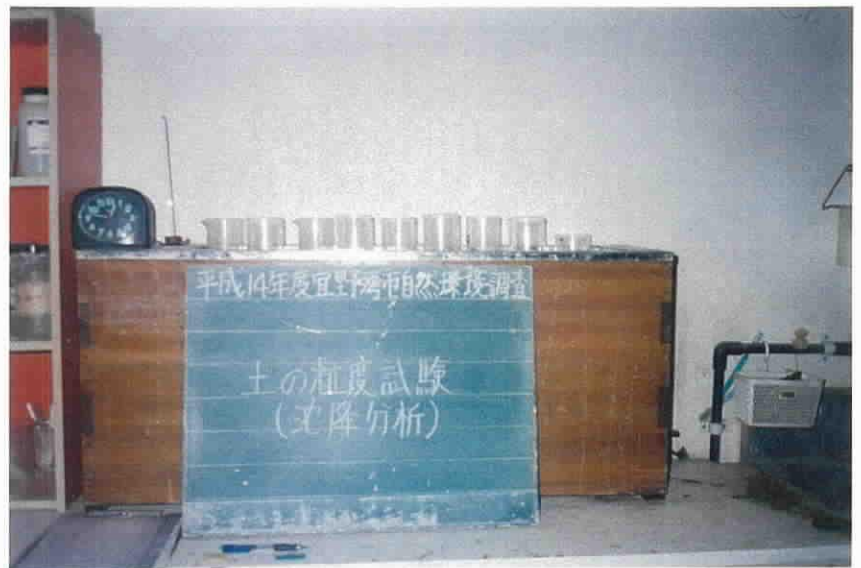 平成14年度宜野湾市自然環境調査
土の粒度試験
(沈降分析)